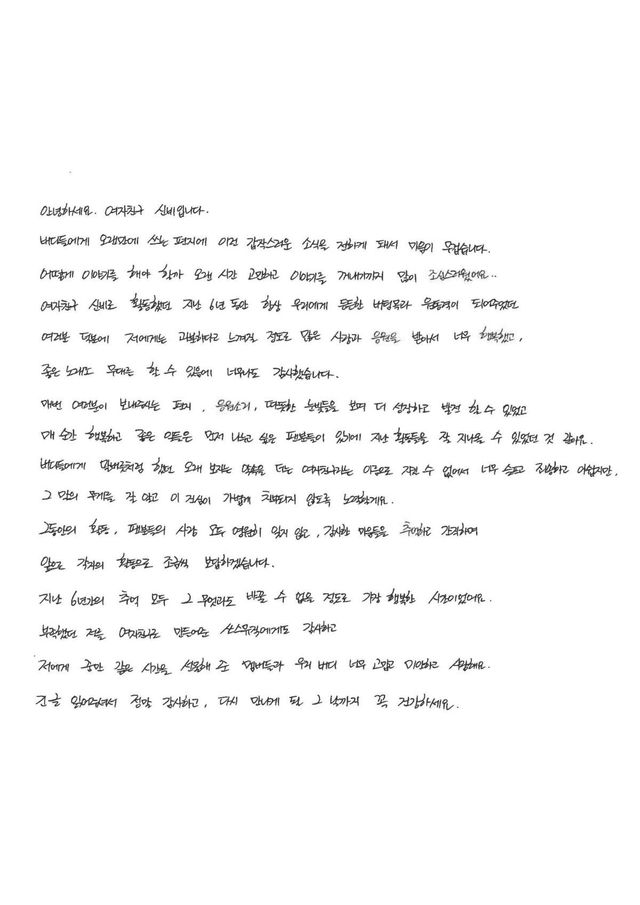 안녕하세요. 여자친구 신비입니다.
버디들에게 오랜만에 쓰는 편지에 이런 갑작스러운 소식을 전하게 돼서 마음이 무겁습니다.
어떻게 이야기를 해야 할까 오랜 시간 고민하고 이야기를 꺼내기까지 많이 조심스러웠어요..
여자친구 신비로 활동했던 지난 6년 동안 항상 우리에게 든든한 버팀목과 원동력이 되어주었던
여러분 덕분에 저에게는 과분하다고 느껴질 정도로 많은 사랑과 응원을 받아서 너무 행복했고,
좋은 노래로 무대를 할 수 있음에 너무나도 감사했습니다.
매번 여러분이 보내주시는 편지, 응원소리, 따뜻한 눈빛들을 보며 더 성장하고 발전 할 수 있었고
매 순간 행복하고 좋은 일들은 먼저 나누고 싶은 팬분들이 있기에 지난 활동들을 잘 지나올 수 있었던 것 같아요.
버디들에게 말버릇처럼 했던 오래 보자는 약속을 더는 여자친구라는 이름으로 지킬 수 없어서 너무 슬프고 죄송하고 아쉽지만,
그 말의 무게를 잘 알고 이 진심이 가볍게 치부되지 않도록 노력할게요.
그동안의 활동, 팬분들의 사랑 모두 영원히 잊지 않고, 감사한 마음들을 추억하고 간직하며
앞으로 각자의 활동으로 조금씩 보답하겠습니다.
지난 6년간의 추억 모두 그 무엇과도 바꿀 수 없을 정도로 가장 행복한 시간이었어요.
부족했던 저를 여자친구로 만들어준 쏘스뮤직에게도 감사하고
저에게 꿈만 같은 시간을 선물해 준 멤버들과 우리 버디 너무 고맙고 미안하고 사랑해요.
긴글 읽어주셔서 정말 감사하고, 다시 만나게 될 그 날까지 꼭 건강하세요.